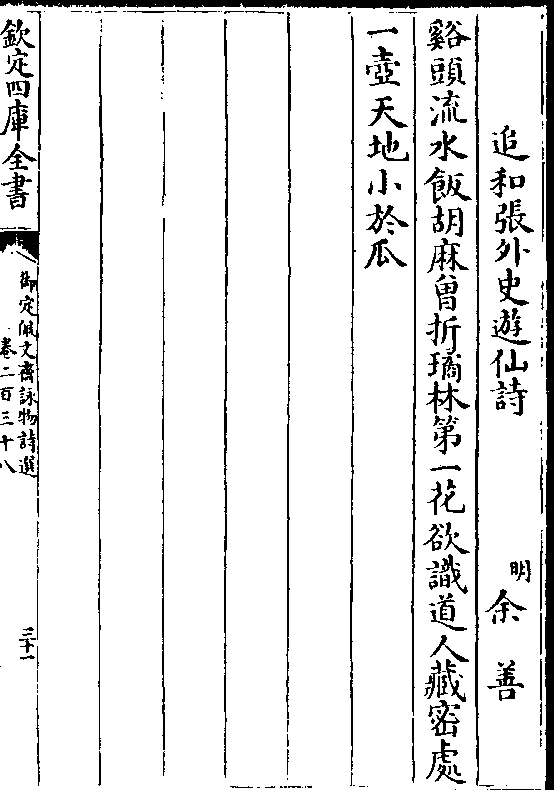 追和張外史遊仙詩
明余善
谿頭流水飯胡麻曽折璚林第一花欲識道人藏密處
一壺天地小於瓜
欽定四庫全書
御定佩文齋詠物詩選
卷二百三十八
三十一